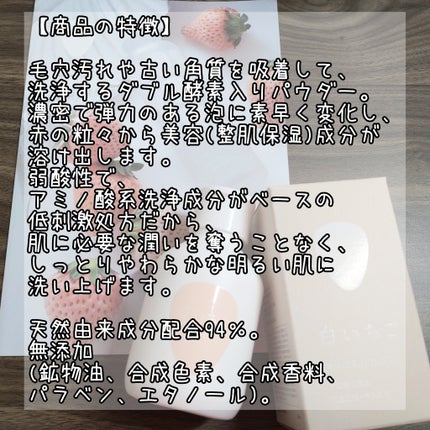 【商品の特徴】
毛穴汚れや古い角質を吸着して、
洗浄するダブル酵素入りパウダー。
濃密で弾力のある泡に素早く変化し、
赤の粒々から美容(整肌保湿)成分が
溶け出します。
弱酸性で、
アミノ酸系洗浄成分がベースの
低刺激処方だから、
肌に必要な潤いを奪うことなく、
しっとりやわらかな明るい肌に
洗い上げます。
天然由来成分配合94%。
無添加
(鉱物油、合成色素、合成香料、
パラベン、エタノール)。
白いちご